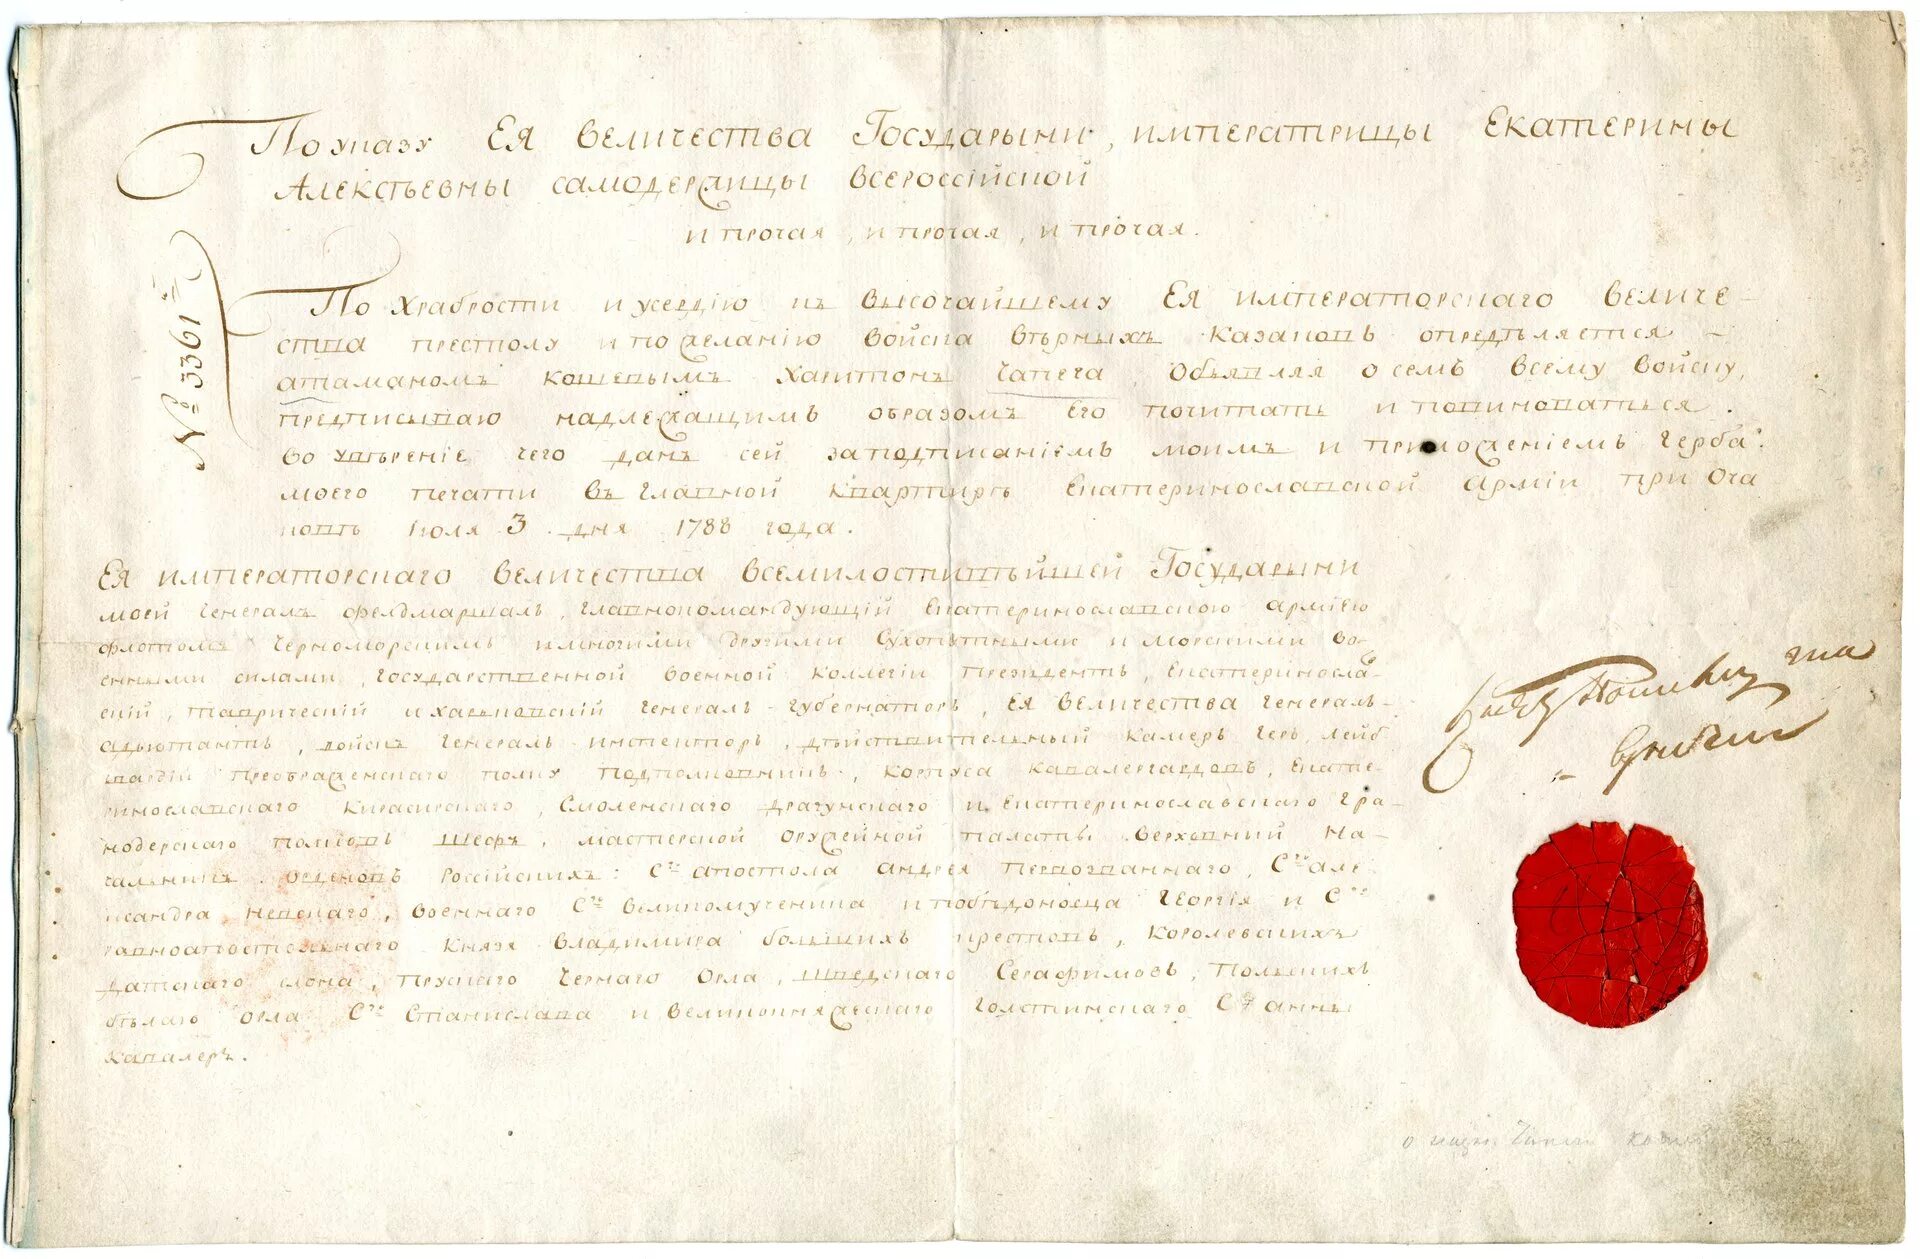 По указу Ея Величества Государыни, императрицы Екатерины
Алексѣевны самодержицы всероссійской
и прочая, и прочая, и прочая.
№ 3361
По храбрости и усердію къ высочайшему Ея императорскаго величе-
ства престолу и по желанію войска вѣрныхъ казаковъ опредѣляется
атаманомъ кошевымъ Харитонъ Чапега. Объявляя о семъ всему войску,
предписываю надлежащимъ образомъ его почитать и повиноваться.
Во увѣреніе чего данъ сей за подписаніемъ моимъ и приложеніемъ герба
моего печати въ главной квартирѣ Екатеринославской арміи при Оча
ковѣ Іюля 3 дня 1788 года.
Ея императорскаго величества всемилостивѣйшей Государыни
моей Генералъ фелдмаршалъ, главнокомандующій Екатеринославскою арміею
флотомъ Черноморскимъ и многими другими сухопутными и морскими во-
енными силами, государственной военной коллегіи президентъ, Екатеринослав
скій, таврическій и харьковскій генералъ-губернаторъ, Ея величества генералъ-
адъютантъ, войскъ генералъ-инспекторъ, дѣйствительный камеръ геръ, лейб
гвардіи преображенскаго полку подполковникъ, корпуса кавалергардовъ, Екате-
ринославскаго кирасирскаго, смоленскаго драгунскаго и Екатеринославскаго гра-
нодерскаго полковъ шефъ, мастерской оружейной палаты верховний на-
чальникъ орденовъ россійскихъ: Сго апостола андрея первозваннаго, Сго але
ксандра невскаго, военнаго Сго великомученика и побѣдоносца георгія и Сго
равноапостольнаго князя владимира большихъ крестовъ, королевскихъ
датскаго слона, прускаго чернаго орла, шведскаго серафимовъ, польскихъ
бѣлаго орла Сго Станислава и великокняжескаго голстинскаго Стя анны
кавалеръ.